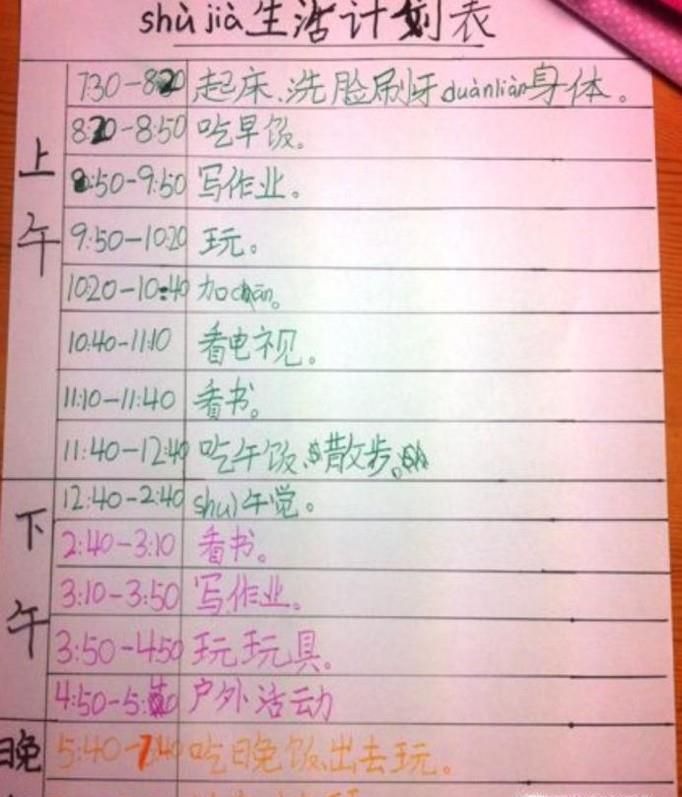 shù jià生活计划表
上午
7:30-8:20 起床、洗脸刷牙duànliàn身体。
8:20-8:50 吃早饭。
8:50-9:50 写作业。
9:50-10:20 玩。
10:20-10:40 加cān。
10:40-11:10 看电视。
11:10-11:40 看书。
11:40-12:40 吃午饭、散步。
下午
12:40-2:40 shuì午觉。
2:40-3:10 看书。
3:10-3:50 写作业。
3:50-4:50 玩玩具。
4:50-5:40 户外活动
晚
5:40-7:40 吃晚饭、出去玩。